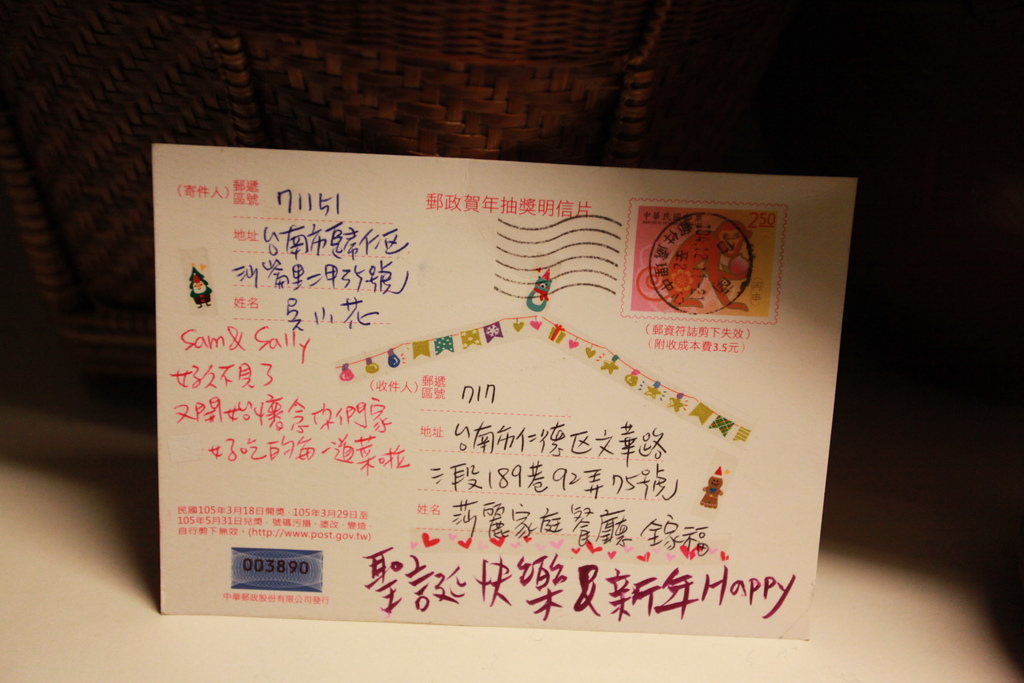 (寄件人) 郵遞區號 71151
郵政賀年抽獎明信片
中華民國
2.50
地址 台南市歸仁區
沙崙里二甲35號
姓名 吳小花
(郵資符誌剪下失效)
(附收成本費3.5元)
Sam & Sally
好久不見了
又開始懷念你們家
好吃的每一道菜啦
(收件人) 郵遞區號 717
地址 台南市仁德區文華路
二段189巷92弄75號
姓名 莎麗家庭餐廳 全家福
民國105年3月18日開獎,105年3月29日至
105年5月31日兌獎,號碼污損、塗改、變造、
自行剪下無效。(http://www.post.gov.tw)
003890
中華郵政股份有限公司發行
聖誕快樂&新年Happy